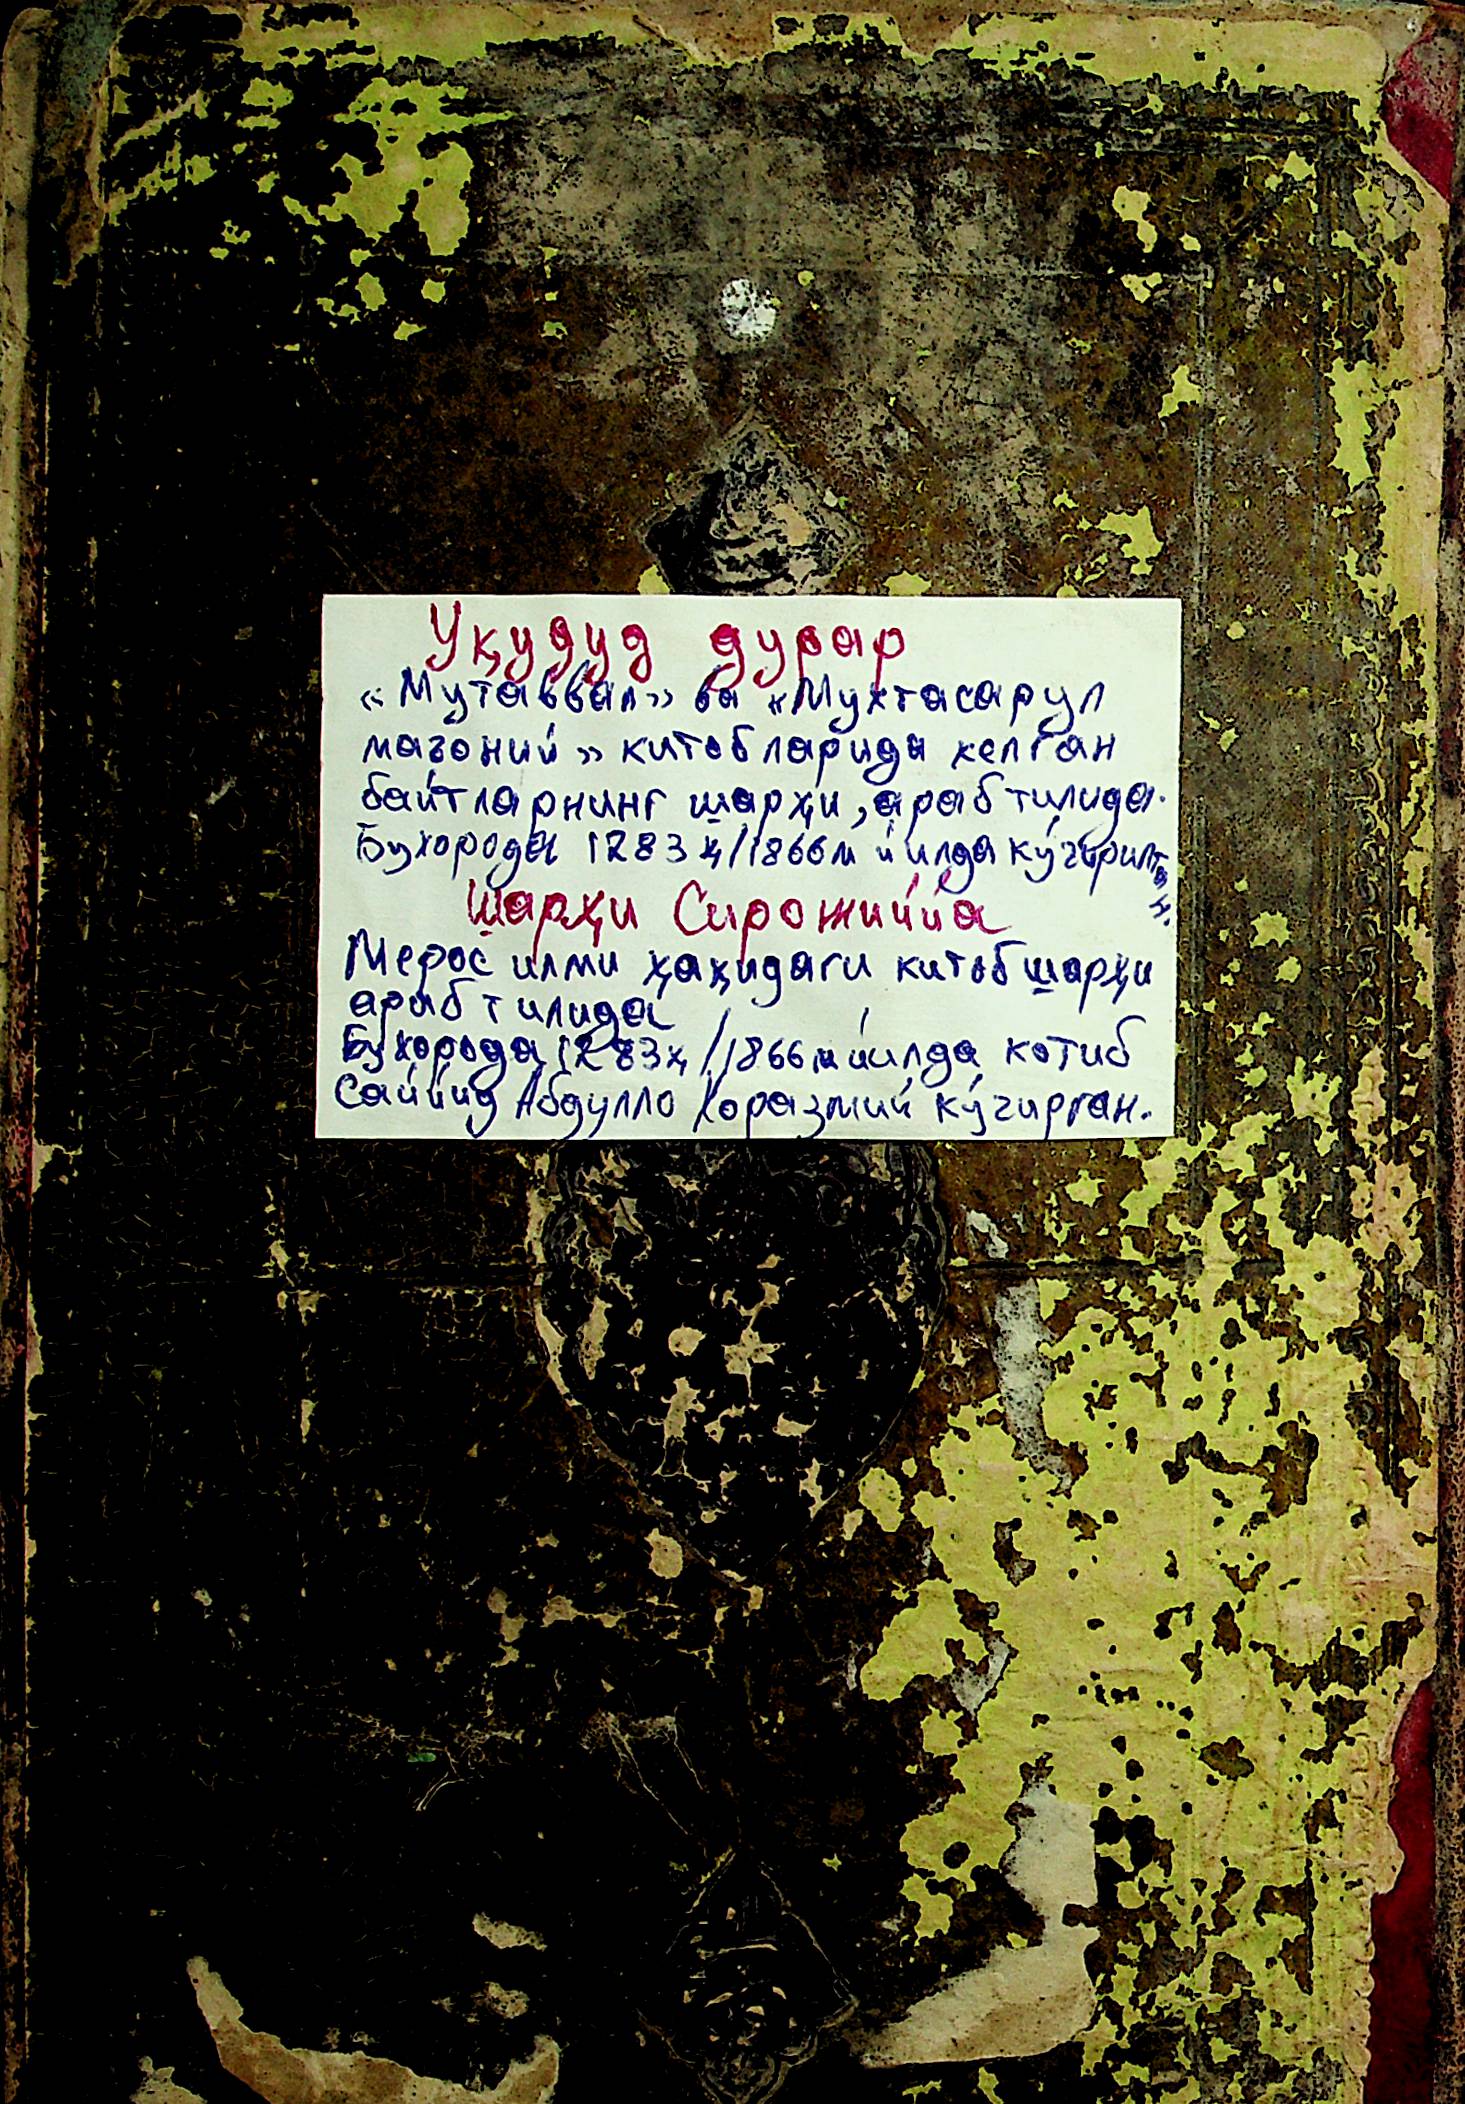 Уқудуд дурар
«Мутаввал» ва «Мухтасарул
маъоний» китобларида келган
байтларнинг шарҳи, араб тилида.
Бухорода 1283ҳ/1866м йилда кўчирилган.
Шарҳи Сирожиййа
Мерос илми ҳақидаги китоб шарҳи
араб тилида
Бухорода 1283ҳ/1866м йилда котиб
Саййид Абдулло Хоразмий кўчирган.